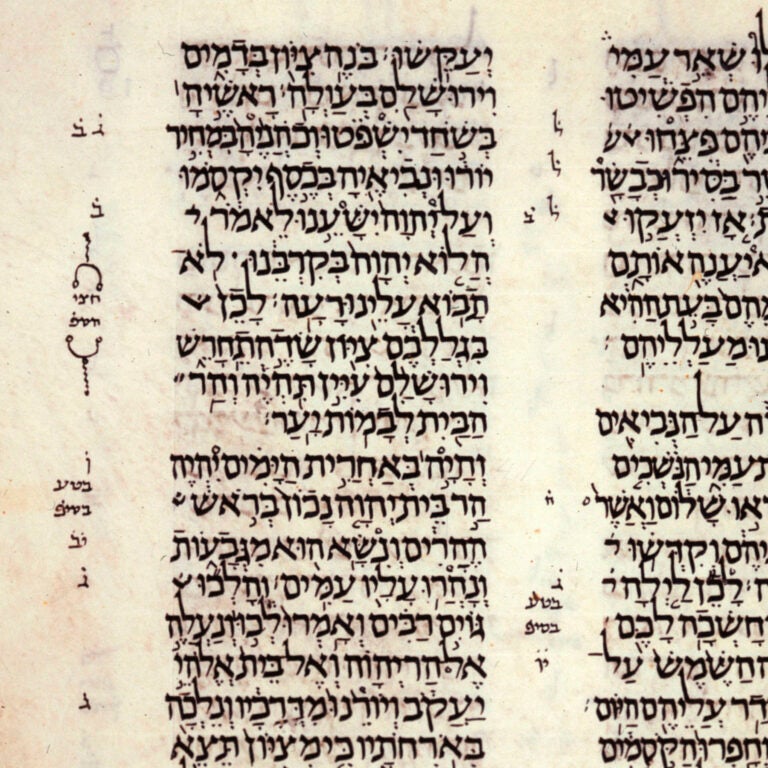 שְׁאֵר עַמִּי
הִפְשִׁיטוּ
פִּצֵּחוּ
בַּסִּיר וּכְבָשָׂר
אָז יִזְעֲקוּ
יַעֲנֶה אוֹתָם
בָּעֵת הַהִיא
מַעַלְלֵיהֶם׃
עַל הַנְּבִיאִים
עַמִּי הַנֹּשְׁכִים
שָׁלוֹם וַאֲשֶׁר
וְקִדְּשׁוּ
לָכֵן לַיְלָה
וְחָשְׁכָה לָכֶם
הַשֶּׁמֶשׁ עַל
עֲלֵיהֶם הַיּוֹם׃
וְחָפְרוּ הַקֹּסְמִים
יְעַקֵּשׁוּ׃ בֹּנֶה צִיּוֹן בְּדָמִים
וִירוּשָׁלִַם בְּעַוְלָה׃ רָאשֶׁיהָ
בְּשֹׁחַד יִשְׁפֹּטוּ וְכֹהֲנֶיהָ בִּמְחִיר
יוֹרוּ וּנְבִיאֶיהָ בְּכֶסֶף יִקְסֹמוּ
וְעַל יְהוָה יִשָּׁעֵנוּ לֵאמֹר
הֲלוֹא יְהוָה בְּקִרְבֵּנוּ לֹא
תָבוֹא עָלֵינוּ רָעָה׃ לָכֵן
בִּגְלַלְכֶם צִיּוֹן שָׂדֶה תֵחָרֵשׁ
וִירוּשָׁלִַם עִיִּין תִּהְיֶה וְהַר
הַבַּיִת לְבָמוֹת יָעַר׃
וְהָיָה בְּאַחֲרִית הַיָּמִים יִהְיֶה
הַר בֵּית יְהוָה נָכוֹן בְּרֹאשׁ
הֶהָרִים וְנִשָּׂא הוּא מִגְּבָעוֹת
וְנָהֲרוּ עָלָיו עַמִּים׃ וְהָלְכוּ
גּוֹיִם רַבִּים וְאָמְרוּ לְכוּ וְנַעֲלֶה
אֶל הַר יְהוָה וְאֶל בֵּית אֱלֹהֵי
יַעֲקֹב וְיוֹרֵנוּ מִדְּרָכָיו וְנֵלְכָה
בְּאֹרְחֹתָיו כִּי מִצִּיּוֹן תֵּצֵא